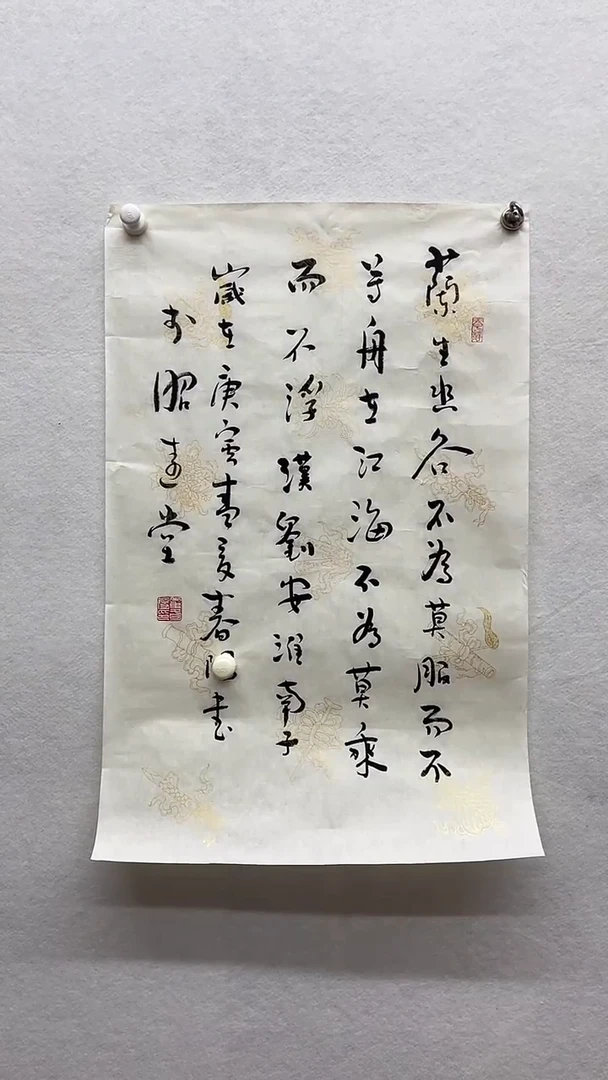 蘭生幽谷不為莫服而不
芳舟在江海不為莫乘
而不浮漢劉安淮南子
歲在庚寅夏春書
於昭堂